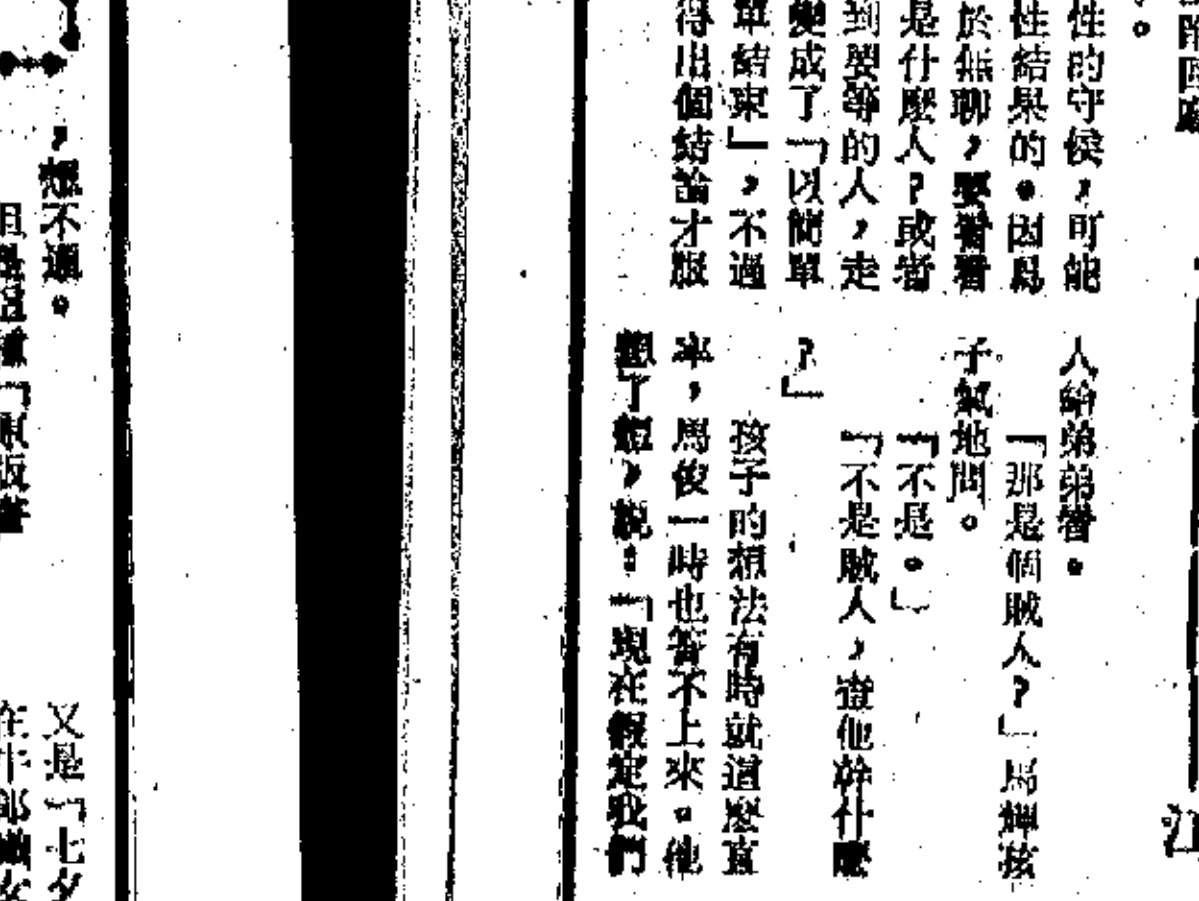 。
性的守候，可能
性結果的。因爲
於無聊，要看看
是什麼人？或者
到要等的人，走
變成了「以簡單
單結束」，不過
得出個結論才服
人給弟弟看。
「那是個賊人？」馬輝孩
子氣地問。
「不是。」
「不是賊人，查他幹什麼
？」
孩子的想法有時就這麼直
率，馬俊一時也答不上來。他
想了想，說：「現在假定我們
江
，想不通。
又是「七夕